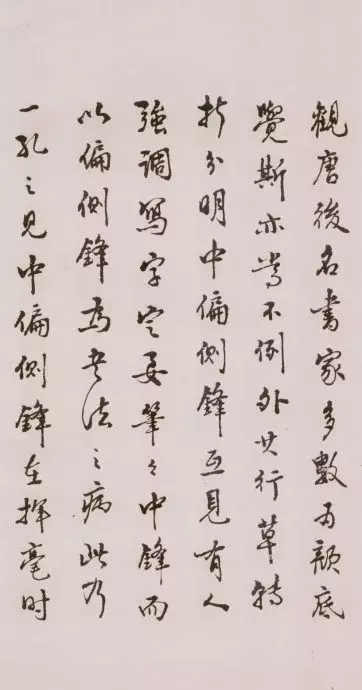 觀唐後名書家多數为顏底
覺斯亦當不例外其行草轉
折分明中偏側鋒互見有人
強調寫字定要筆々中鋒而
以偏側鋒為書法之病此乃
一孔之見中偏側鋒在揮毫时